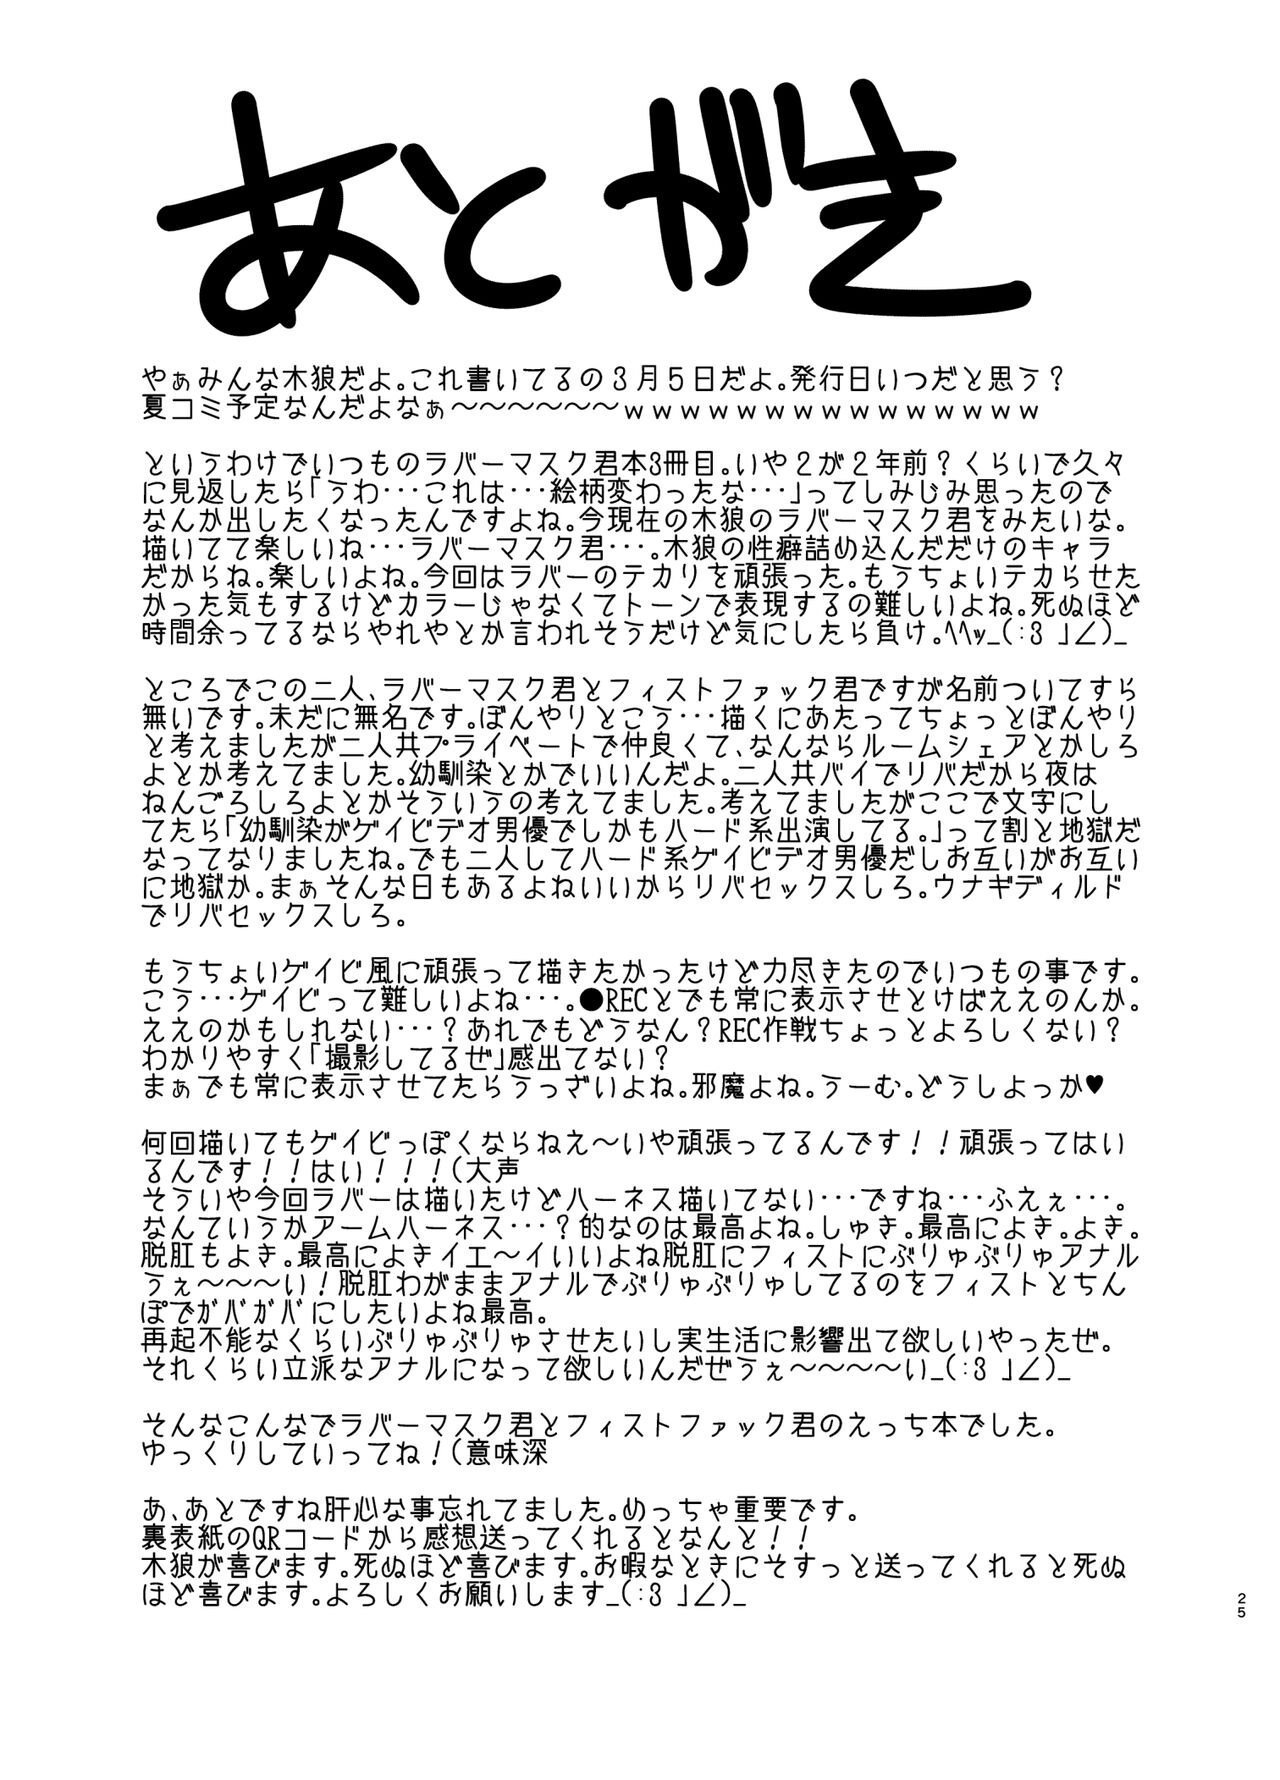 あとがき
やぁみんな木狼だよ。これ書いてるの3月5日だよ。発行日いつだと思う？
夏コミ予定なんだよなぁ～～～～～～ｗｗｗｗｗｗｗｗｗｗｗｗｗｗｗ
というわけでいつものラバーマスク君本3冊目。いや2が2年前？くらいで久々
に見返したら「うわ･･･これは･･･絵柄変わったな･･･」ってしみじみ思ったので
なんか出したくなったんですよね。今現在の木狼のラバーマスク君をみたいな。
描いてて楽しいね･･･ラバーマスク君･･･。木狼の性癖詰め込んだだけのキャラ
だからね。楽しいよね。今回はラバーのテカリを頑張った。もうちょいテカらせた
かった気もするけどカラーじゃなくてトーンで表現するの難しいよね。死ぬほど
時間余ってるならやれやとか言われそうだけど気にしたら負け。^^y_(:3 」∠)_
ところでこの二人、ラバーマスク君とフィストファック君ですが名前ついてすら
無いです。未だに無名です。ぼんやりとこう･･･描くにあたってちょっとぼんやり
と考えましたが二人共プライベートで仲良くて、なんならルームシェアとかしろ
よとか考えてました。幼馴染とかでいいんだよ。二人共バイでリバだから夜は
ねんごろしろよとかそういうの考えてました。考えてましたがここで文字にし
てたら「幼馴染がゲイビデオ男優でしかもハード系出演してる。」って割と地獄だ
なってなりましたね。でも二人してハード系ゲイビデオ男優だしお互いがお互い
に地獄か。まぁそんな日もあるよねいいからリバセックスしろ。ウナギディルド
でリバセックスしろ。
もうちょいゲイビ風に頑張って描きたかったけど力尽きたのでいつもの事です。
こう･･･ゲイビって難しいよね･･･。●RECとでも常に表示させとけばええのんか。
ええのかもしれない･･･？あれでもどうなん？REC作戦ちょっとよろしくない？
わかりやすく「撮影してるぜ」感出てない？
まぁでも常に表示させてたらうっざいよね。邪魔よね。うーむ。どうしよっか♥
何回描いてもゲイビっぽくならねえ～いや頑張ってるんです！！頑張ってはい
るんです！！はい！！！（大声
そういや今回ラバーは描いたけどハーネス描いてない･･･ですね･･･ふえぇ･･･。
なんていうかアームハーネス･･･？的なのは最高よね。しゅき。最高によき。よき。
脱肛もよき。最高によきイエ～イいいよね脱肛にフィストにぶりゅぶりゅアナル
うぇ～～～い！脱肛わがままアナルでぶりゅぶりゅしてるのをフィストとちん
ぽでガバガバにしたいよね最高。
再起不能なくらいぶりゅぶりゅさせたいし実生活に影響出て欲しいやったぜ。
それくらい立派なアナルになって欲しいんだぜうぇ～～～～い_(:3 」∠)_
そんなこんなでラバーマスク君とフィストファック君のえっち本でした。
ゆっくりしていってね！（意味深
あ、あとですね肝心な事忘れてました。めっちゃ重要です。
裏表紙のQRコードから感想送ってくれるとなんと！！
木狼が喜びます。死ぬほど喜びます。お暇なときにそすっと送ってくれると死ぬ
ほど喜びます。よろしくお願いします_(:3 」∠)_
25